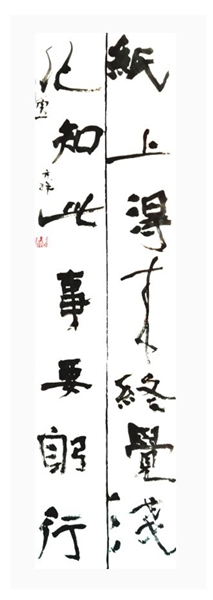 紙上得来終覺淺
知此事要躬行